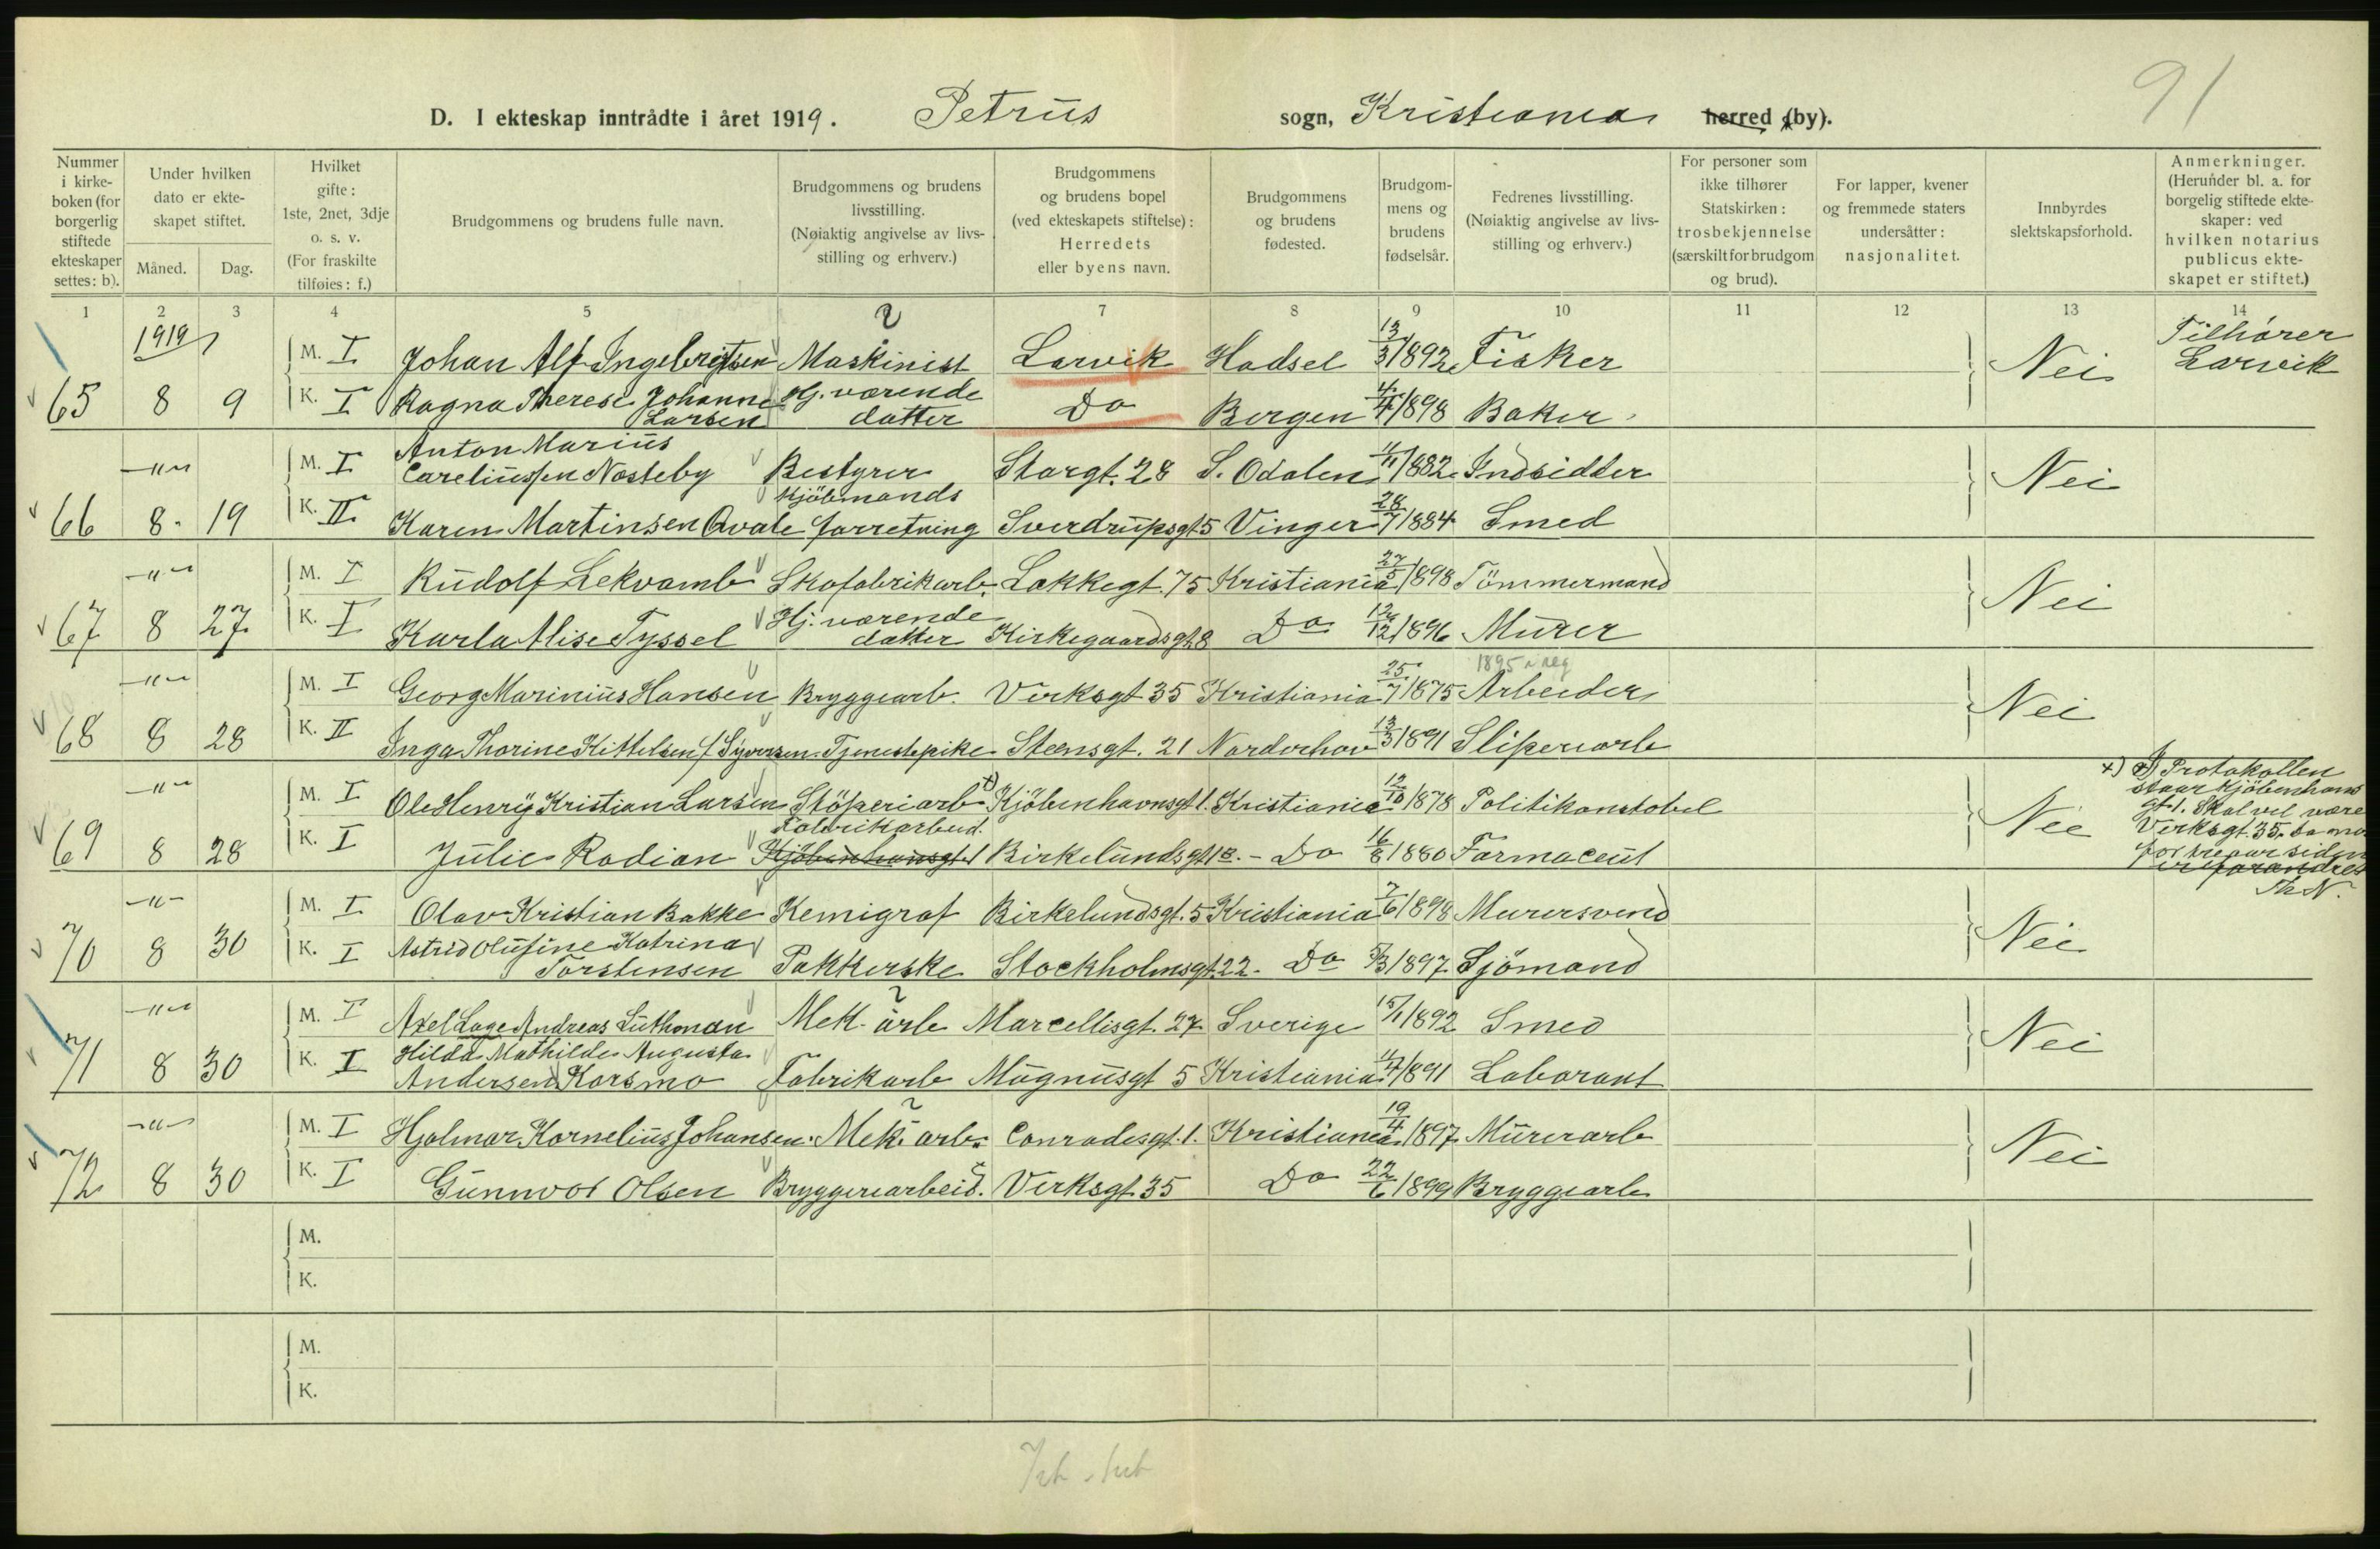 91
D. I ekteskap inntrådte i året 1919. Petrus sogn, Kristiania herred (by).
Nummer i kirkeboken (for borgerlig stiftede ekteskaper settes: b).
Under hvilken dato er ekteskapet stiftet.
Måned. Dag.
Hvilket gifte: 1ste, 2net, 3dje o. s. v. (For fraskilte tilføies: f.)
Brudgommens og brudens fulle navn.
Brudgommens og brudens livsstilling. (Nøiaktig angivelse av livsstilling og erhverv.)
Brudgommens og brudens bopel (ved ekteskapets stiftelse): Herredets eller byens navn.
Brudgommens og brudens fødested.
Brudgommens og brudens fødselsår.
Fedrenes livsstilling. (Nøiaktig angivelse av livsstilling og erhverv.)
For personer som ikke tilhører Statskirken: trosbekjennelse (særskilt for brudgom og brud).
For lapper, kvener og fremmede staters undersåtter: nasjonalitet.
Innbyrdes slektskapsforhold.
Anmerkninger. (Herunder bl. a. for borgelig stiftede ekteskaper: ved hvilken notarius publicus ekteskapet er stiftet.)
1 2 3 4 5 6 7 8 9 10 11 12 13 14
1919
M. I Johan Alf Ingebrigtsen Maskinist Larvik Hadsel 13/3 1892 Fisker Nei Tilhører Larvik
65 8 9 K. I Ragna Therese Johanne Larsen Hj. værende datter Do Bergen 4/4 1898 Baker
-"- M. I Anton Marius Careliussen Nosteby Bestyrer Storgt. 28 S. Odalen 11/11 1882 Indsidder Nei
66 8 19 K. II Karen Martinsen Qvale Kjöbmands forretning Sverdrupsgt 5 Vinger 28/7 1884 Smed
-"- M. I Rudolf Lekvamb Skofabrikarb. Lakkegt. 75 Kristiania 27/5 1898 Tömmermand Nei
67 8 27 K. I Karla Alise Tyssel Hj. værende datter Kirkegaardsgt 8 Do 12/12 1896 Murer
1895 n reg
-"- M. I Georg Marinius Hansen Bryggearb. Verksgt 35 Kristiania 25/7 1875 Arbeider Nei
68 8 28 K. II Inga Thorine Kittelsen f. Syversen Tjenestepike Steensgt. 21 Norderhov 13/3 1891 Sliperiarb
-"- M. I Ole Henry Kristian Larsen Stöperiarb x) Kjöbenhavnsgt 1. Kristiania 12/10 1878 Politikonstabel Nei
69 8 28 K. I Julie Rodian Fabrikarbeid. Kjöbenhavnsgt 1 Birkelundsgt 12. - Do 16/8 1880 Farmaceut
x) I Protokollen staar Kjöbenhavns gt. 1. Skal vel være Verksgt. 35.
Th N.
-"- M. I Olav Kristian Bakke Kemigraf Birkelundsgt. 5 Kristiania 7/6 1898 Murersvend Nei
70 8 30 K. I Astrid Olufine Katrina Torstensen Pakkerske Stockholmsgt 22 - Do 5/3 1897 Sjömand
-"- M. I Axel Lage Andreas Luthman Mek. arb Marcellisgt. 27 Sverige 15/1 1892 Smed Nei
71 8 30 K. I Hilda Mathilde Augusta Andersen Korsmo Fabrikarb Magnusgt 5 Kristiania 11/4 1891 Laborant
-"- M. I Hjalmar Kornelius Johansen Mek. arb. Conradisgt. 1. Kristiania 19/4 1897 Murerarb Nei
72 8 30 K. I Gunnvor Olsen Bryggeriarbeid. Verksgt 35 Do 22/6 1899 Bryggearb
M.
K.
M.
K.